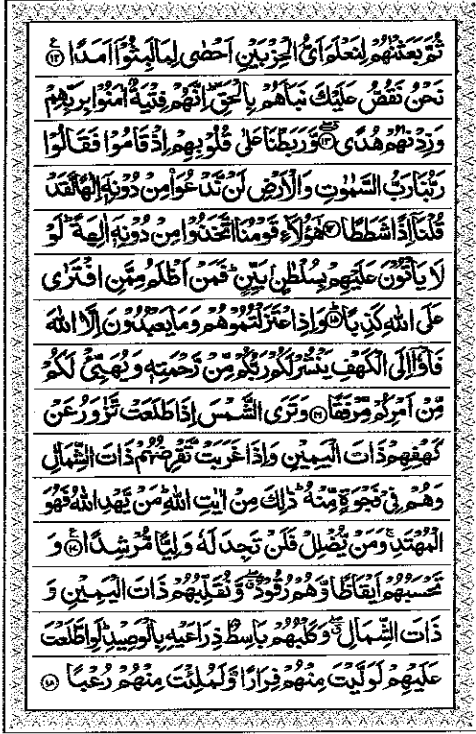 ثُمَّ بَعَثْنٰهُمْ لِنَعْلَمَ اَىُّ الْحِزْبَيْنِ اَحْصٰى لِمَا لَبِثُوْۤا اَمَدًا ﴿۱۲﴾
نَحْنُ نَقُصُّ عَلَيْكَ نَبَاَهُمْ بِالْحَقِّ ؕ اِنَّهُمْ فِتْيَةٌ اٰمَنُوْا بِرَبِّهِمْ
وَزِدْنٰهُمْ هُدًى ﴿۱۳﴾ وَّرَبَطْنَا عَلٰى قُلُوْبِهِمْ اِذْ قَامُوْا فَقَالُوْا
رَبُّنَا رَبُّ السَّمٰوٰتِ وَالْاَرْضِ لَنْ نَّدْعُوَا۟ مِنْ دُوْنِهٖۤ اِلٰهًا لَّقَدْ
قُلْنَاۤ اِذًا شَطَطًا ﴿۱۴﴾ هٰۤؤُلَآءِ قَوْمُنَا اتَّخَذُوْا مِنْ دُوْنِهٖۤ اٰلِهَةً ؕ لَوْ
لَا يَاْتُوْنَ عَلَيْهِمْ بِسُلْطٰنٍۭ بَيِّنٍ ؕ فَمَنْ اَظْلَمُ مِمَّنِ افْتَرٰى
عَلَى اللّٰهِ كَذِبًا ﴿۱۵﴾ وَاِذِ اعْتَزَلْتُمُوْهُمْ وَمَا يَعْبُدُوْنَ اِلَّا اللّٰهَ
فَاْوٗۤا اِلَى الْكَهْفِ يَنْشُرْ لَكُمْ رَبُّكُمْ مِّنْ رَّحْمَتِهٖ وَيُهَيِّئْ لَكُمْ
مِّنْ اَمْرِكُمْ مِّرْفَقًا ﴿۱۶﴾ وَتَرَى الشَّمْسَ اِذَا طَلَعَتْ تَّزٰوَرُ عَنْ
كَهْفِهِمْ ذَاتَ الْيَمِيْنِ وَاِذَا غَرَبَتْ تَّقْرِضُهُمْ ذَاتَ الشِّمَالِ
وَهُمْ فِيْ فَجْوَةٍ مِّنْهُ ؕ ذٰلِكَ مِنْ اٰيٰتِ اللّٰهِ ؕ مَنْ يَّهْدِ اللّٰهُ فَهُوَ
الْمُهْتَدِ ۚ وَمَنْ يُّضْلِلْ فَلَنْ تَجِدَ لَهٗ وَلِيًّا مُّرْشِدًا ﴿۱۷﴾ وَ
تَحْسَبُهُمْ اَيْقَاظًا وَّهُمْ رُقُوْدٌ ۖ وَّنُقَلِّبُهُمْ ذَاتَ الْيَمِيْنِ وَ
ذَاتَ الشِّمَالِ ۖ وَكَلْبُهُمْ بَاسِطٌ ذِرَاعَيْهِ بِالْوَصِيْدِ ؕ لَوِ اطَّلَعْتَ
عَلَيْهِمْ لَوَلَّيْتَ مِنْهُمْ فِرَارًا وَّلَمُلِئْتَ مِنْهُمْ رُعْبًا ﴿۱۸﴾